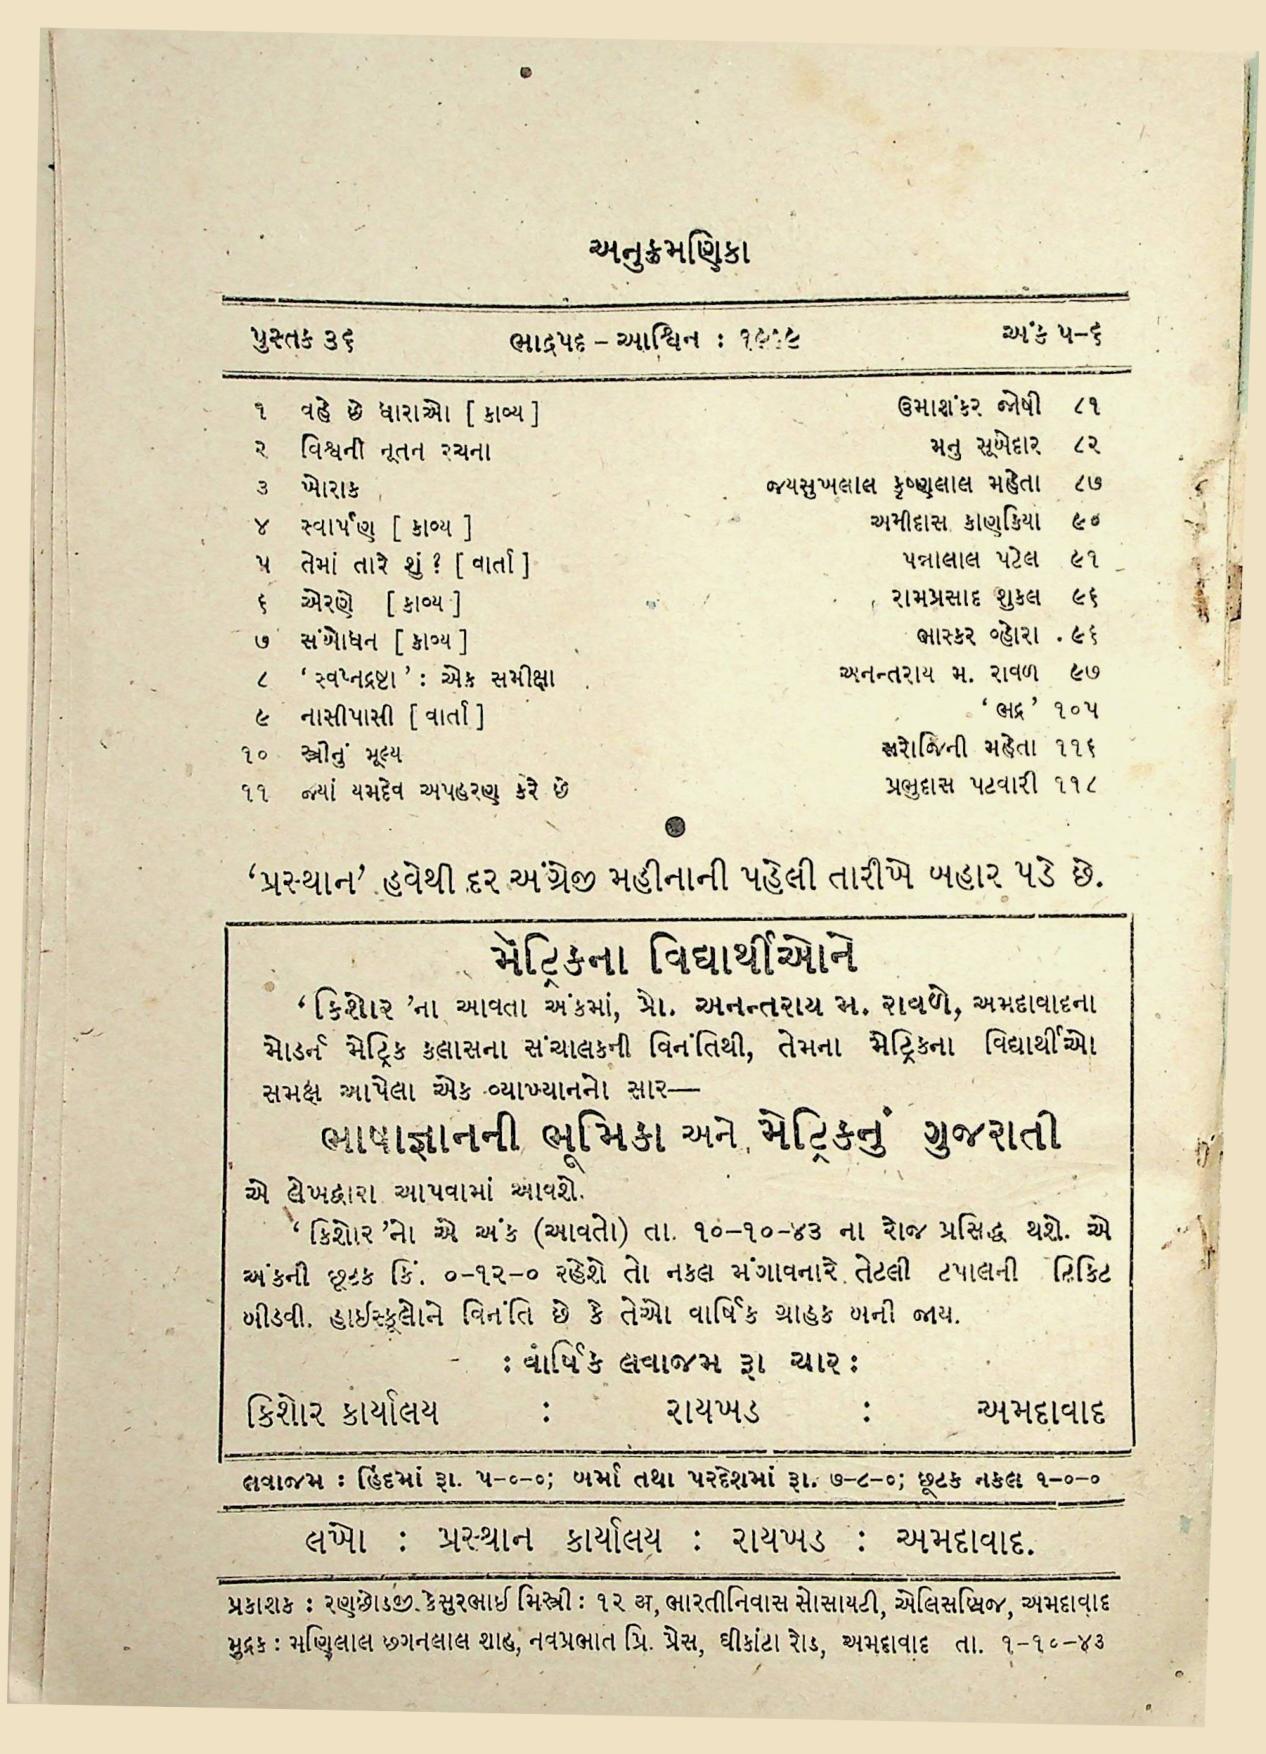 અનુક્રમણિકા
પુસ્તક ૩૬ ભાદ્રપદ – આશ્વિન : અંક ૫-૬
૧ વહે છે ધારાઓ [ કાવ્ય ] ઉમાશંકર જોષી ૮૧
૨ વિશ્વની નૂતન રચના મનુ સૂબેદાર ૮૨
૩ ખોરાક જયસુખલાલ કૃષ્ણલાલ મહેતા ૮૭
૪ સ્વાર્પણ [ કાવ્ય ] અમીદાસ કાણકિયા ૯૦
૫ તેમાં તારે શું ? [ વાર્તા ] પન્નાલાલ પટેલ ૯૧
૬ એરણે [ કાવ્ય ] રામપ્રસાદ શુકલ ૯૬
૭ સંબોધન [ કાવ્ય ] ભાસ્કર વ્હોરા ૯૬
૮ ‘ સ્વપ્નદ્રષ્ટા ’ : એક સમીક્ષા અનન્તરાય મ. રાવળ ૯૭
૯ નાસીપાસી [ વાર્તા ] ‘ ભદ્ર ’ ૧૦૫
૧૦ સ્ત્રીનું મૂલ્ય સરોજિની મહેતા ૧૧૬
૧૧ જ્યાં યમદેવ અપહરણ કરે છે પ્રભુદાસ પટવારી ૧૧૮
‘પ્રસ્થાન’ હવેથી દર અંગ્રેજી મહીનાની પહેલી તારીખે બહાર પડે છે.
મૅટ્રિકના વિદ્યાર્થીઓને
‘ કિશોર ’ના આવતા અંકમાં, પ્રો. અનન્તરાય મ. રાવળે, અમદાવાદના
મોડર્ન મેટ્રિક કલાસના સંચાલકની વિનંતિથી, તેમના મેટ્રિકના વિદ્યાર્થીઓ
સમક્ષ આપેલા એક વ્યાખ્યાનનો સાર—
ભાષાજ્ઞાનની ભૂમિકા અને મેટ્રિકનું ગુજરાતી
એ લેખદ્વારા આપવામાં આવશે.
‘ કિશોર ’નો એ અંક (આવતો) તા. ૧૦-૧૦-૪૩ ના રોજ પ્રસિદ્ધ થશે. એ
અંકની છૂટક કિં. ૦-૧૨-૦ રહેશે તો નકલ મંગાવનારે તેટલી ટપાલની ટિકિટ
બીડવી. હાઈસ્કૂલોને વિનંતિ છે કે તેઓ વાર્ષિક ગ્રાહક બની જાય.
: વાર્ષિક લવાજમ રૂા ચાર :
કિશોર કાર્યાલય : રાયખડ : અમદાવાદ
લવાજમ : હિંદમાં રૂા. ૫-૦-૦; બર્મા તથા પરદેશમાં રૂા. ૭-૮-૦; છૂટક નકલ ૧-૦-૦
લખો : પ્રસ્થાન કાર્યાલય : રાયખડ : અમદાવાદ.
પ્રકાશક : રણછોડજી કેસુરભાઈ મિસ્ત્રી : ૧૨ अ, ભારતીનિવાસ સોસાયટી, એલિસબ્રિજ, અમદાવાદ
મુદ્રક : મણિલાલ છગનલાલ શાહ, નવપ્રભાત પ્રિ. પ્રેસ, ઘીકાંટા રોડ, અમદાવાદ તા. ૧-૧૦-૪૩